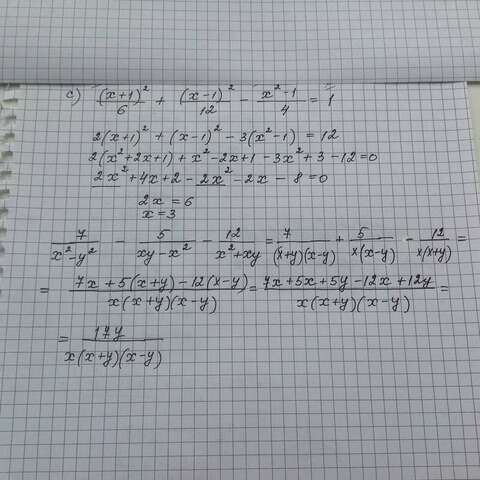 c) (x+1)²/6 + (x-1)²/12 - (x²-1)/4 = 1
2(x+1)² + (x-1)² - 3(x²-1) = 12
2(x²+2x+1) + x²-2x+1 - 3x²+3-12=0
2x²+4x+2-2x²-2x-8=0
2x=6
x=3
7/(x²-y²) - 5/(xy-x²) - 12/(x²+xy) = 7/((x+y)(x-y)) + 5/(x(x-y)) - 12/(x(x+y)) =
= (7x+5(x+y)-12(x-y))/(x(x+y)(x-y)) = (7x+5x+5y-12x+12y)/(x(x+y)(x-y)) =
= 17y/(x(x+y)(x-y))